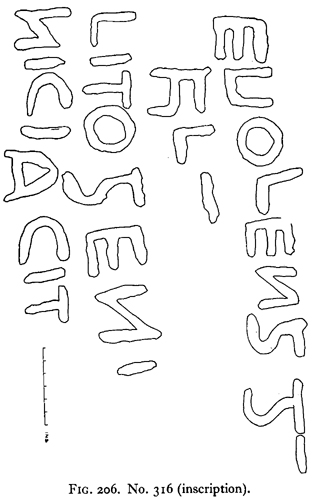 EVOLENGGI
FILI
LITOGENI
HIC IACIT
FIG. 206. No. 316 (inscription).